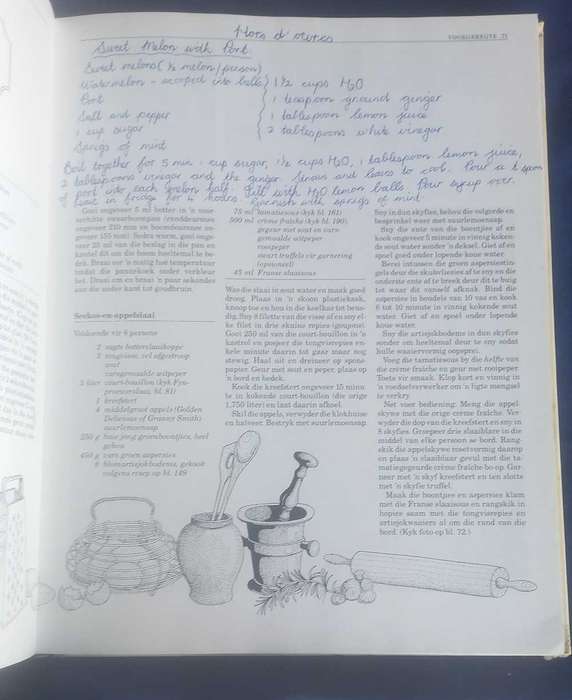 Hors d'ouvres
VOORGEREGTE 71
Sweet Melon with Port
Sweet melons (½ melon/person)
Watermelon - scooped into balls
Port
Salt and pepper
1 cup sugar
Sprigs of mint
1½ cups H2O
1 teaspoon ground ginger
1 tablespoon lemon juice
2 tablespoons white vinegar
Boil together for 5 min: cup sugar, 1½ cups H2O, 1 tablespoon lemon juice,
2 tablespoons vinegar and the ginger. Strain and leave to cool. Pour a t spoon
of port into each melon half. Fill with H2O lemon balls. Pour syrup over.
Leave in fridge for 4 hours. Garnish with sprigs of mint.
Gooi ongeveer 5 ml botter in 'n
swartpan (rendersensoos
ongeveer 210 mm
ongeveer 155 mm). Sodra warm, gooi ongeveer
25 ml van die beslag in die pan en
kantel dit om die boom heeltemal te be-
dek. Braai oor 'n matig hoë temperatuur
totdat die pannekoek onder verkleur
het. Draai om en braai 'n paar sekondes
aan die ander kant tot goudbruin.
Seekos-en-appelslaai
Voldoende vir 6 persone
2 sagte botterslaaikoppe
3 tongvisse, vel afgestroop
sout
varsgemaalde witpeper
3 liter court-bouillon (kyk Fyn-
proewerslaai, bl. 81)
1 kreefstert
4 middelgroot appels (Golden
Delicious of Granny Smith)
suurlemoensap
250 g baie jong groenboontjies, heel
gehou
450 g vars groen aspersies
6 blomartisjokbodems, gekook
volgens resep op bl. 149
75 ml tamatiesous (kyk bl. 161)
500 ml crème fraîche (kyk bl. 190),
gegeur met sout en vars-
gemaalde witpeper
rooipeper
swart truffels vir garnering
(opsioneel)
45 ml Franse slaaisous
Was die slaai in sout water en maak goed
droog. Plaas in 'n skoon plastieksak,
knoop toe en hou in die koelkas tot benu-
dig. Sny 8 filette van die visse af en sny el-
ke filet in drie skuins repies (goujons).
Gooi 250 ml van die court-bouillon in 'n
kastrol en posjeer die tongvisrepies en-
kele minute daarin tot gaar maar nog
stewig. Haal uit en dreineer op spons-
papier. Geur met sout en peper, plaas op
'n bord en bedek.
Kook die kreefstert ongeveer 15 minu-
te in kokende court-bouillon (die orige
1,750 liter) en laat daarin afkoel.
Skil die appels, verwyder die klokhuise
en halveer. Bestryk met suurlemoensap.
Sny in dun skyfies, behou die volgorde en
besprinkel weer met suurlemoensap.
Sny die ente van die boontjies af en
kook ongeveer 5 minute in vinnig koken-
de sout water sonder 'n deksel. Giet af en
spoel goed onder lopende koue water.
Berei intussen die groen aspersiestin-
gels deur die skubvliesies af te sny en die
onderste ente af te breek deur dit te buig
tot waar dit vanself afknak. Bind die
aspersies in bondels van 10 vas en kook
8 tot 10 minute in vinnig kokende sout
water. Giet af en spoel onder lopende
koue water.
Sny die artisjokbodems in dun skyfies
sonder om heeltemal deur te sny sodat
hulle waaiervormig oopsprei.
Voeg die tamatiesous by die helfte van
die crème fraîche en geur met rooipeper.
Toets vir smaak. Klop kort en vinnig in
'n voedselverwerker om 'n ligte mengsel
te verkry.
Net voor bediening. Meng die appel-
skywe met die orige crème fraîche. Ver-
wyder die dop van die kreefstert en sny in
8 skyfies. Groepeer drie slaaiblare in die
middel van elke persoon se bord. Rang-
skik die appelskywe rosetvormig daarop
en plaas 'n slaaiblaar gevul met die ta-
matiegegeurde crème fraîche bo-op. Gar-
neer met 'n skyf kreefstert en ten slotte
met 'n skyfie truffel.
Maak die boontjies en aspersies klam
met die Franse slaaisous en rangskik in
hopies saam met die tongvisrepies en
artisjokwaaiers al om die rand van die
bord. (Kyk foto op bl. 72.)